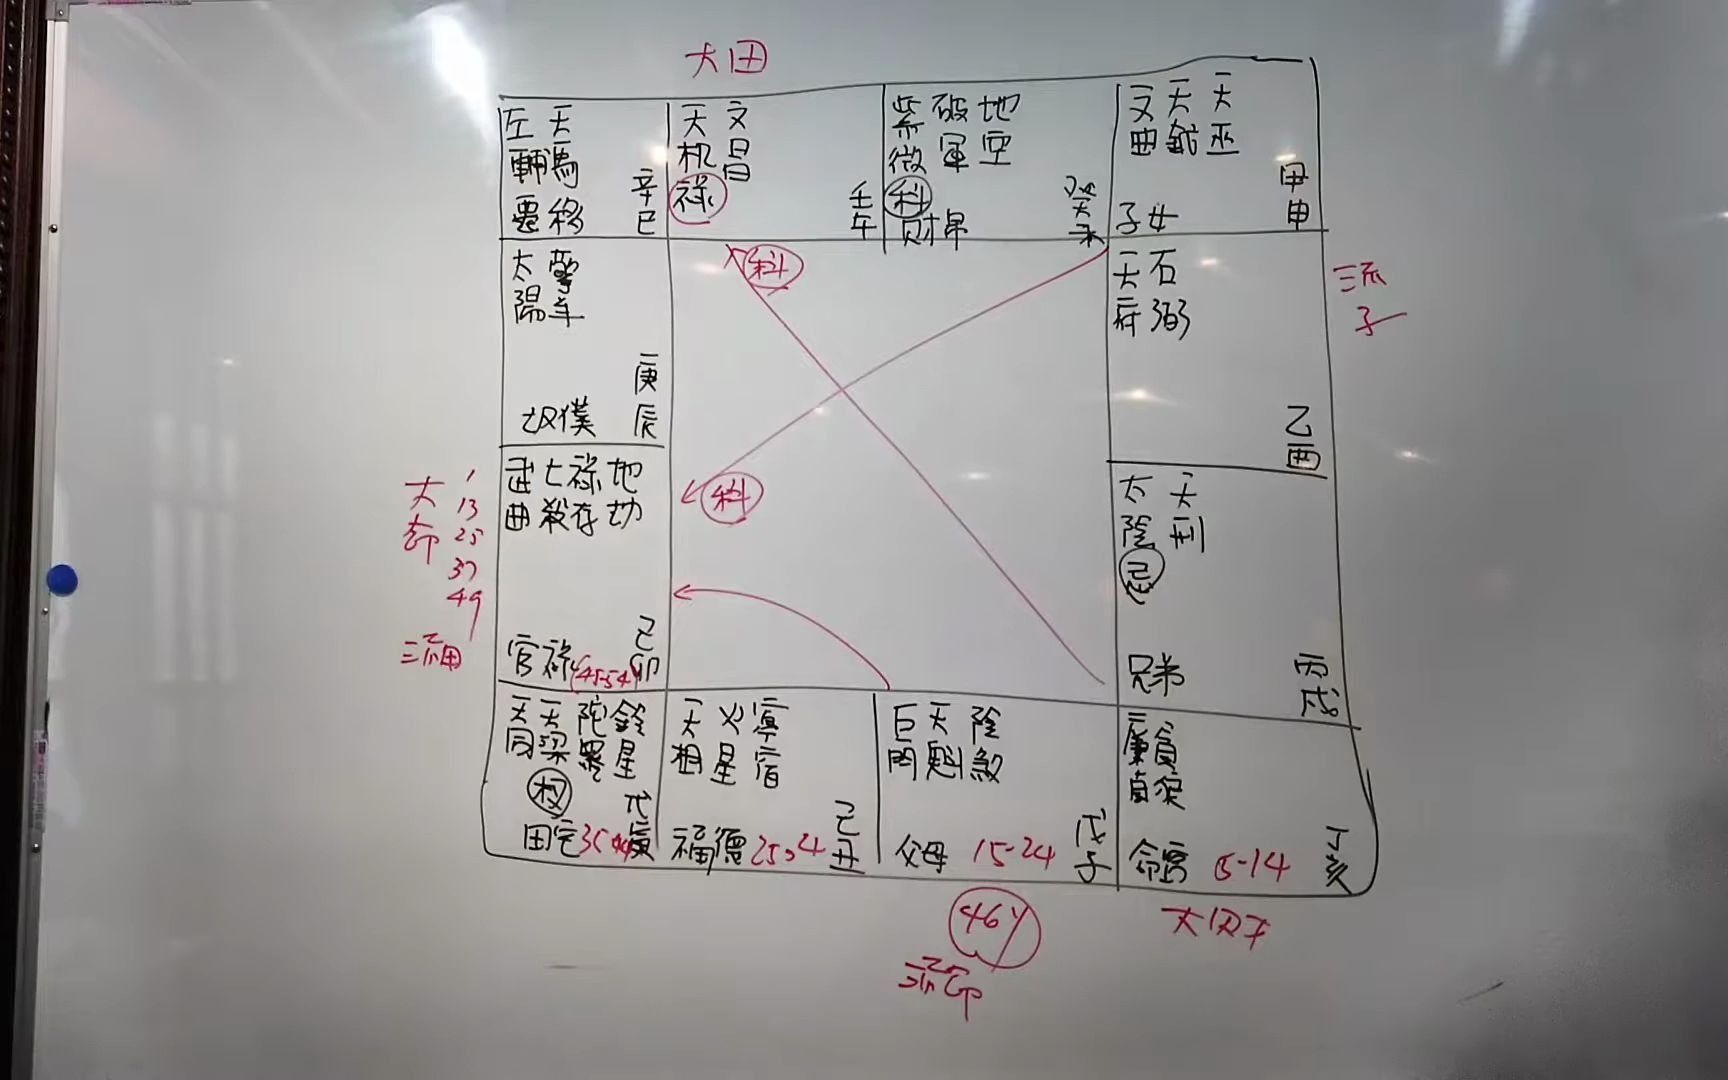 大田
左 天
輔 馬
遷移
辛巳
天 文
机 昌
祿
壬午
紫 破 地
微 軍 空
科
財帛
癸未
文 天 天
曲 鉞 巫
子女
甲申
太 擎
陽 羊
奴僕
庚辰
科
天 右
府 弼
乙酉
流
子
大
命
1
13
25
37
49
流田
武 七 祿 地
曲 殺 存 劫
官祿 45-54
己卯
科
太 天
陰 刑
忌
兄弟
丙戌
天 天 陀 鈴
同 梁 羅 星
权
田宅 35-44
戊寅
天 火 寡
相 星 宿
福德 25-34
己丑
巨 天 陰
門 魁 煞
父母 15-24
戊子
廉 貪
貞 狼
命宮 5-14
丁亥
46y
流命